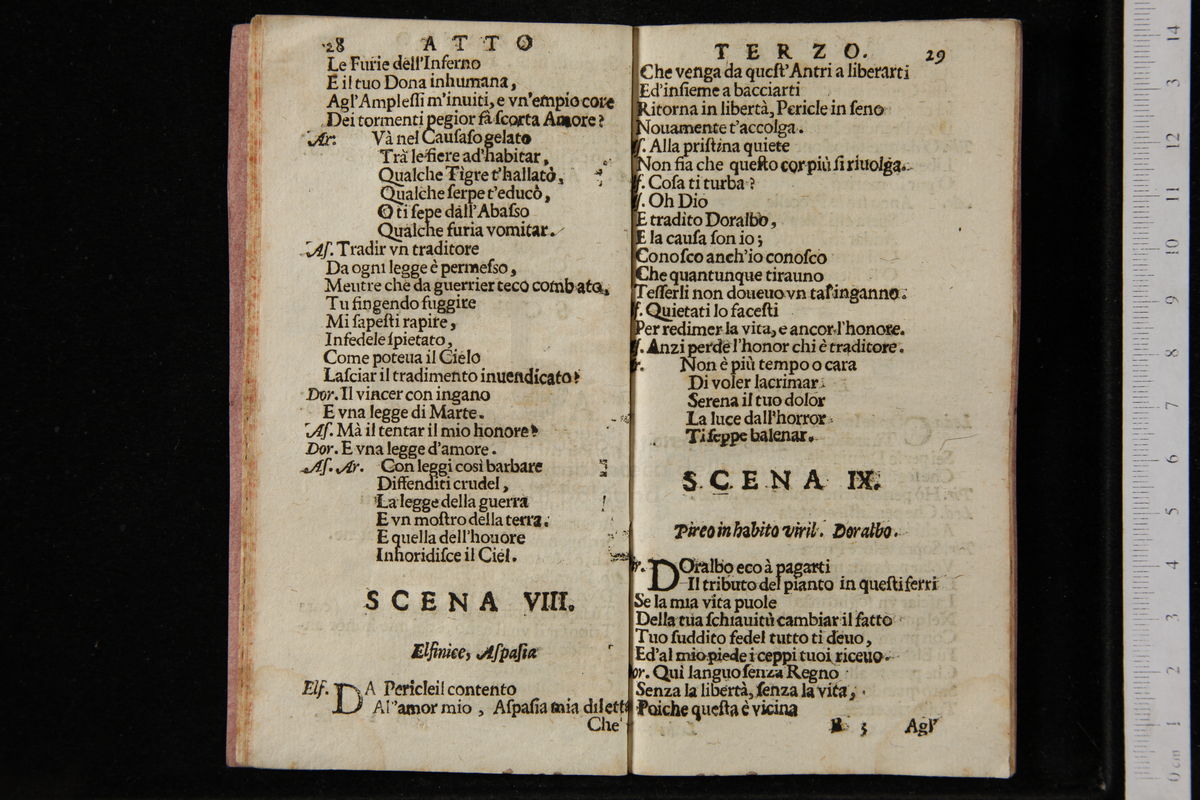 28 ATTO
Le Furie dell'Inferno
E il tuo Dona inhumana,
Agl'Ampleſſi m'inuiti, e vn'empio core
Dei tormenti pegior fà ſcorta Amore?
Ar. Và nel Cauſaſo gelato
Trà le fiere ad'habitar,
Qualche Tigre t'hallatò,
Qualche ſerpe t'educò,
O ti ſepe dall'Abaſso
Qualche furia vomitar.
Aſ. Tradir vn traditore
Da ogni legge è permeſso,
Meutre che da guerrier teco combato,
Tu fingendo fuggire
Mi ſapeſti rapire,
Infedele ſpietato,
Come poteua il Cielo
Laſciar il tradimento inuendicato?
Dor. Il vincer con ingano
E vna legge di Marte.
Aſ. Mà il tentar il mio honore?
Dor. E vna legge d'amore.
Aſ. Ar. Con leggi così barbare
Diffenditi crudel,
La legge della guerra
E vn moſtro della terra.
E quella dell'houore
Inhoridiſce il Ciel.
SCENA VIII.
Elfinice, Aſpaſia
Elf. DA Pericleil contento
Al'amor mio, Aſpaſia mia diletta
Che
TERZO. 29
Che venga da queſt'Antri a liberarti
Ed'inſieme a bacciarti
Ritorna in libertà, Pericle in ſeno
Nouamente t'accolga.
ſ. Alla priſtina quiete
Non fia che queſto cor più ſi riuolga.
f. Coſa ti turba?
ſ. Oh Dio
E tradito Doralbo,
E la cauſa ſon io;
Conoſco anch'io conoſco
Che quantunque tirauno
Teſſerli non doueuo vn tal'inganno.
f. Quietati lo faceſti
Per redimer la vita, e ancor l'honore.
ſ. Anzi perde l'honor chi è traditore.
r. Non è più tempo o cara
Di voler lacrimar
Serena il tuo dolor
La luce dall'horror
Ti ſeppe balenar.
SCENA IX.
Pireo in habito viril. Doralbo.
ir. DOralbo eco à pagarti
Il tributo del pianto in queſti ferri
Se la mia vita puole
Della tua ſchiauitù cambiar il fatto
Tuo ſuddito fedel tutto ti deuo,
Ed'al mio piede i ceppi tuoi riceuo.
or. Quì languo ſenza Regno
Senza la libertà, ſenza la vita,
Poiche queſta è vicina
B 5 Agl'